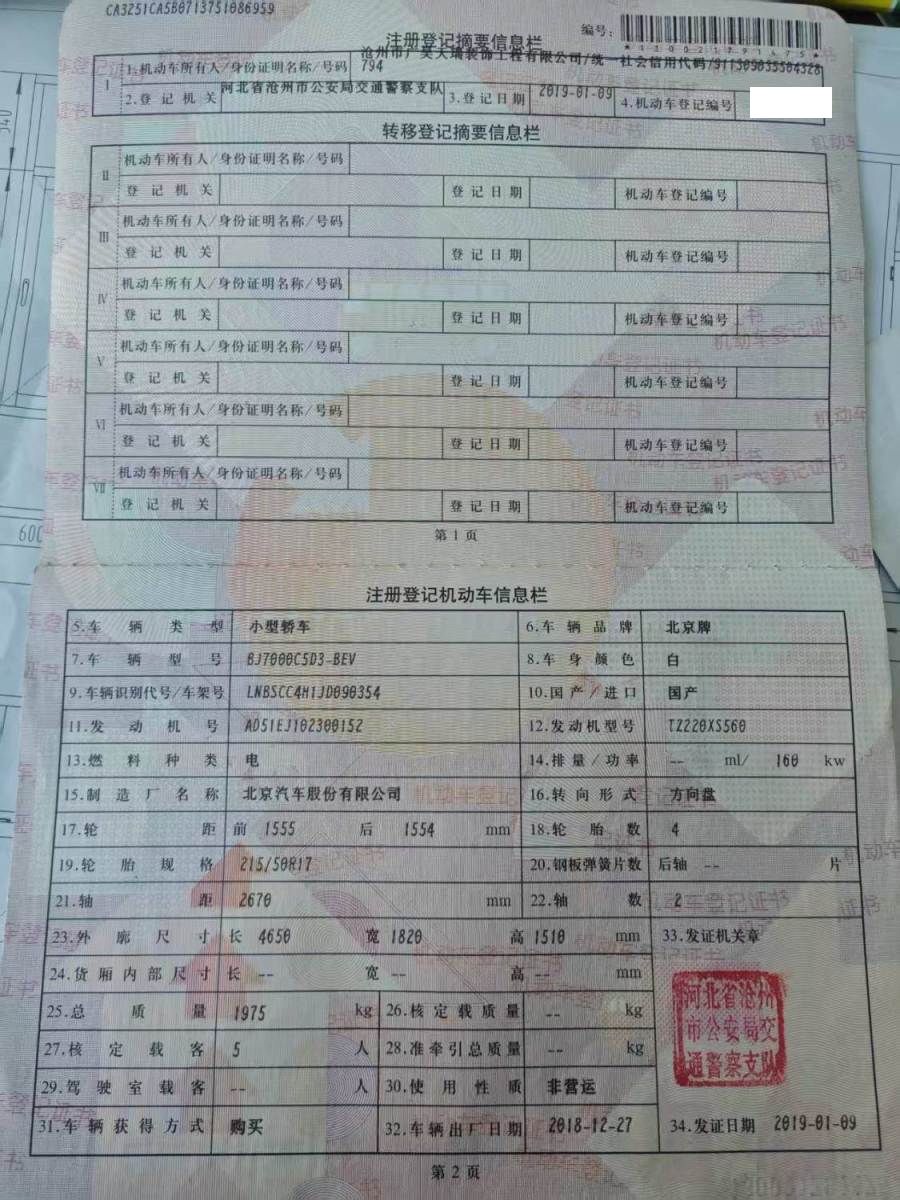 CA3Z51CA5B0713751086959
注册登记摘要信息栏
编号:
*120021791475*
Ⅰ
1.机动车所有人/身份证明名称/号码
794
2.登记机关
河北省沧州市公安局交通警察支队
3.登记日期
2019-01-09
4.机动车登记编号
转移登记摘要信息栏
Ⅱ
机动车所有人/身份证明名称/号码
登记机关
登记日期
机动车登记编号
Ⅲ
机动车所有人/身份证明名称/号码
登记机关
登记日期
机动车登记编号
Ⅳ
机动车所有人/身份证明名称/号码
登记机关
登记日期
机动车登记编号
Ⅴ
机动车所有人/身份证明名称/号码
登记机关
登记日期
机动车登记编号
Ⅵ
机动车所有人/身份证明名称/号码
登记机关
登记日期
机动车登记编号
Ⅶ
机动车所有人/身份证明名称/号码
登记机关
登记日期
机动车登记编号
第 1 页
注册登记机动车信息栏
5.车辆类型 小型轿车 6.车辆品牌 北京牌
7.车辆型号 BJ7000C5D3-BEV 8.车身颜色 白
9.车辆识别代号/车架号 LNBSCC4H1JD090354 10.国产/进口 国产
11.发动机号 AD51EJ102300152 12.发动机型号 TZ220XS560
13.燃料种类 电 14.排量/功率 -- ml/ 160 kw
15.制造厂名称 北京汽车股份有限公司 16.转向形式 方向盘
17.轮距 前 1555 后 1554 mm 18.轮胎数 4
19.轮胎规格 215/50R17 20.钢板弹簧片数 后轴 -- 片
21.轴距 2670 mm 22.轴数 2
23.外廓尺寸 长 4650 宽 1820 高 1510 mm 33.发证机关章
24.货厢内部尺寸 长 -- 宽 -- 高 -- mm
25.总质量 1975 kg 26.核定载质量 -- kg
27.核定载客 5 人 28.准牵引总质量 -- kg
河北省沧州
市公安局交
通警察支队
29.驾驶室载客 -- 人 30.使用性质 非营运
31.车辆获得方式 购买 32.车辆出厂日期 2018-12-27 34.发证日期 2019-01-09
第 2 页